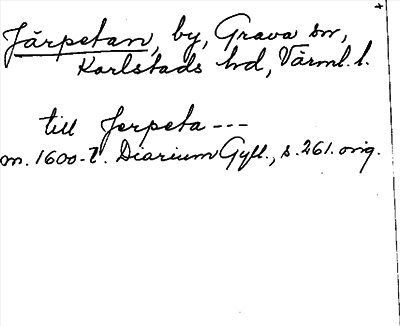 Järpetan, by, Grava sn,
Karlstads hd, Värml. l.
till Jerpeta ---
m. 1600-t. Diarium Gyll., s. 261. orig.